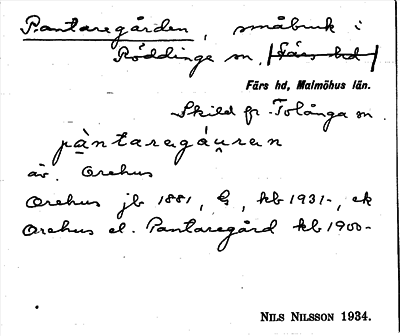 Pantaregården, småbruk i
Röddinge sn. Färs hd
Färs hd, Malmöhus län.
Skild fr. Tolånga sn.
pàntaragáu̯ren
äv. Orehus
Orehus jb 1881, G, kb 1931-, ek
Orehus el. Pantaregård kb 1900-
NILS NILSSON 1934.